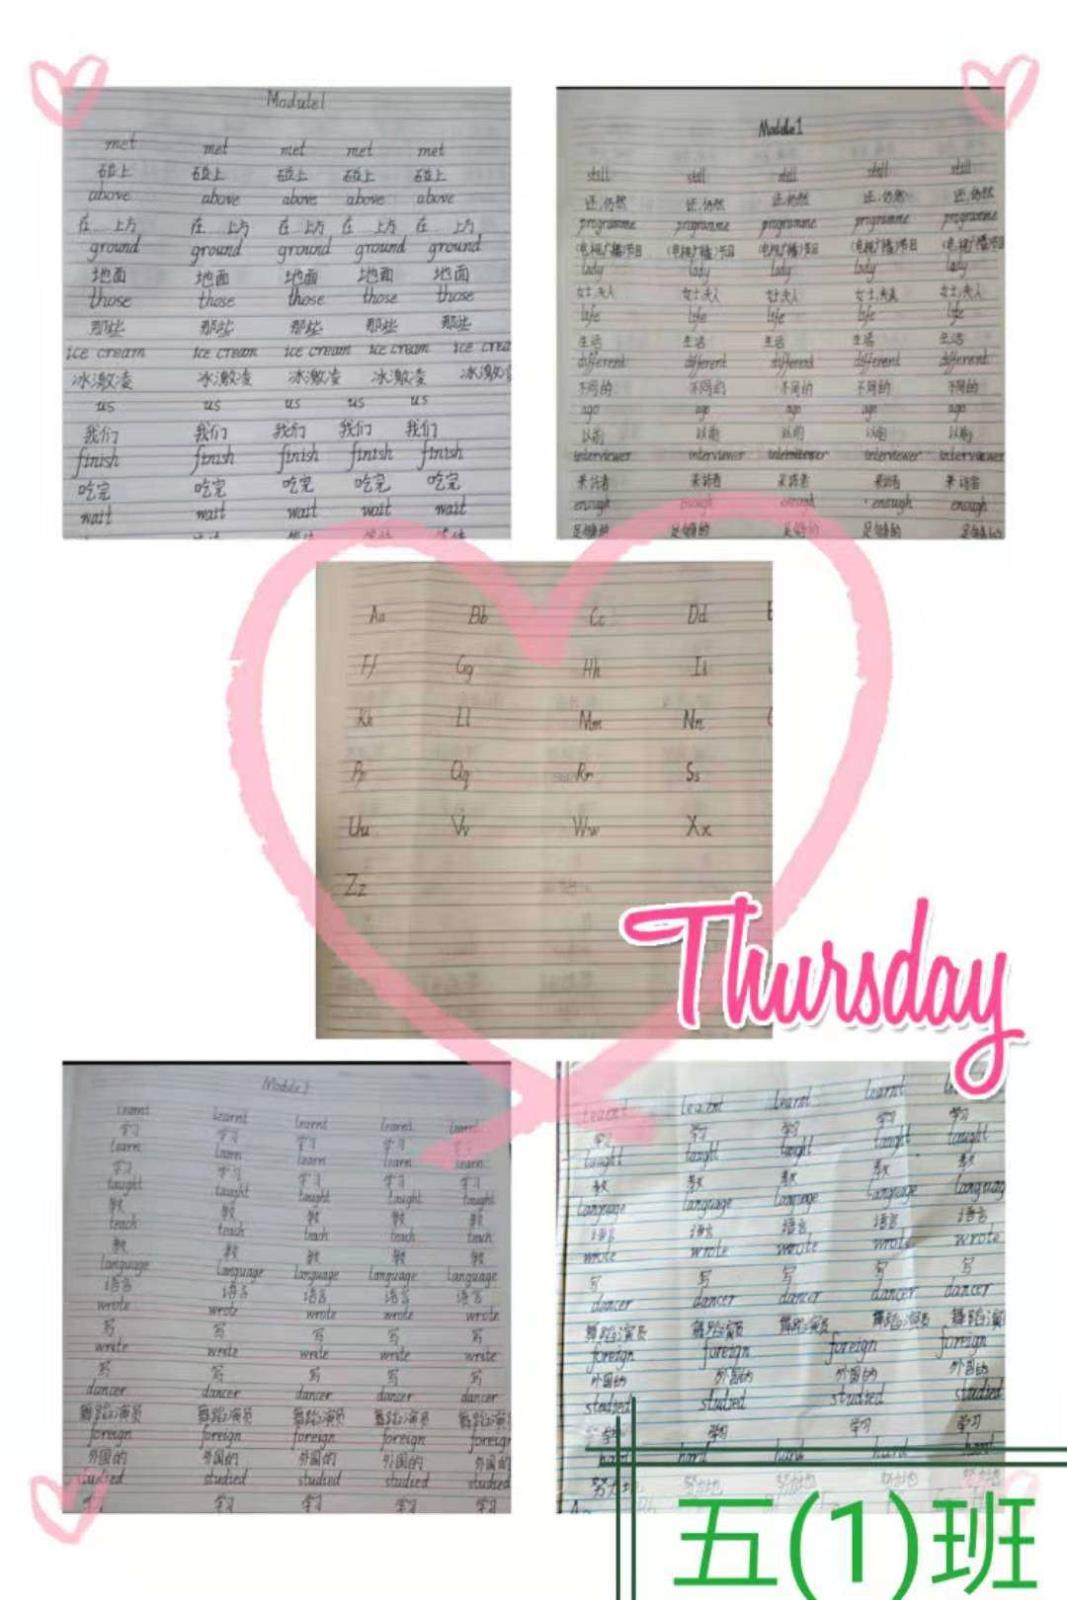 Module1
met met met met met
碰上 碰上 碰上 碰上 碰上
above above above above above
在 上方 在 上方 在 上方 在 上方 在 上方
ground ground ground ground ground
地面 地面 地面 地面 地面
those those those those those
那些 那些 那些 那些 那些
ice cream ice cream ice cream ice cream ice crea
冰激凌 冰激凌 冰激凌 冰激凌 冰激
us us us us us
我们 我们 我们 我们 我们
finish finish finish finish finish
吃完 吃完 吃完 吃完 吃完
wait wait wait wait wait
Module1
still still still still still
还,仍然 还,仍然 还,仍然 还,仍然 还,仍然
programme programme programme programme programme
(电视广播)节目 (电视广播)节目 (电视广播)节目 (电视广播)节目 (电视广播)节目
lady lady lady lady lady
女士,夫人 女士,夫人 女士,夫人 女士,夫人 女士,夫人
life life life life life
生活 生活 生活 生活 生活
different different different different different
不同的 不同的 不同的 不同的 不同的
ago ago ago ago ago
以前 以前 以前 以前 以前
interviewer interviewer interviewer interviewer interviewer
采访者 采访者 采访者 采访者 采访者
enough enough enough enough enough
足够的 足够的 足够的 足够的 足够的
Aa Bb Cc Dd
Ff Gg Hh Ii
Kk Ll Mm Nn
Pp Qq Rr Ss
Uu Vv Ww Xx
Zz
Thursday
Module2
learnt learnt learnt learnt learnt
学习 学习 学习 学习 学习
learn learn learn learn learn
学习 学习 学习 学习 学习
taught taught taught taught taught
教 教 教 教 教
teach teach teach teach teach
教 教 教 教 教
language language language language language
语言 语言 语言 语言 语言
wrote wrote wrote wrote wrote
写 写 写 写 写
write write write write write
写 写 写 写 写
dancer dancer dancer dancer dancer
舞蹈演员 舞蹈演员 舞蹈演员 舞蹈演员 舞蹈演员
foreign foreign foreign foreign foreign
外国的 外国的 外国的 外国的 外国的
studied studied studied studied studied
学习 学习 学习 学习 学习
learnt learnt learnt learnt
学习 学习 学习 学习 学习
taught taught taught taught taught
教 教 教 教 教
language language language language languag
语言 语言 语言 语言 语言
wrote wrote wrote wrote wrote
写 写 写 写 写
dancer dancer dancer dancer dancer
舞蹈演员 舞蹈演员 舞蹈演员 舞蹈演员 舞蹈演
foreign foreign foreign foreign
外国的 外国的 外国的 外国的
studied studied studied studied
学习 学习 学习 学习
hard hard hard hard hard
努力地 努力地 努力地 努力地 努力地
五(1)班